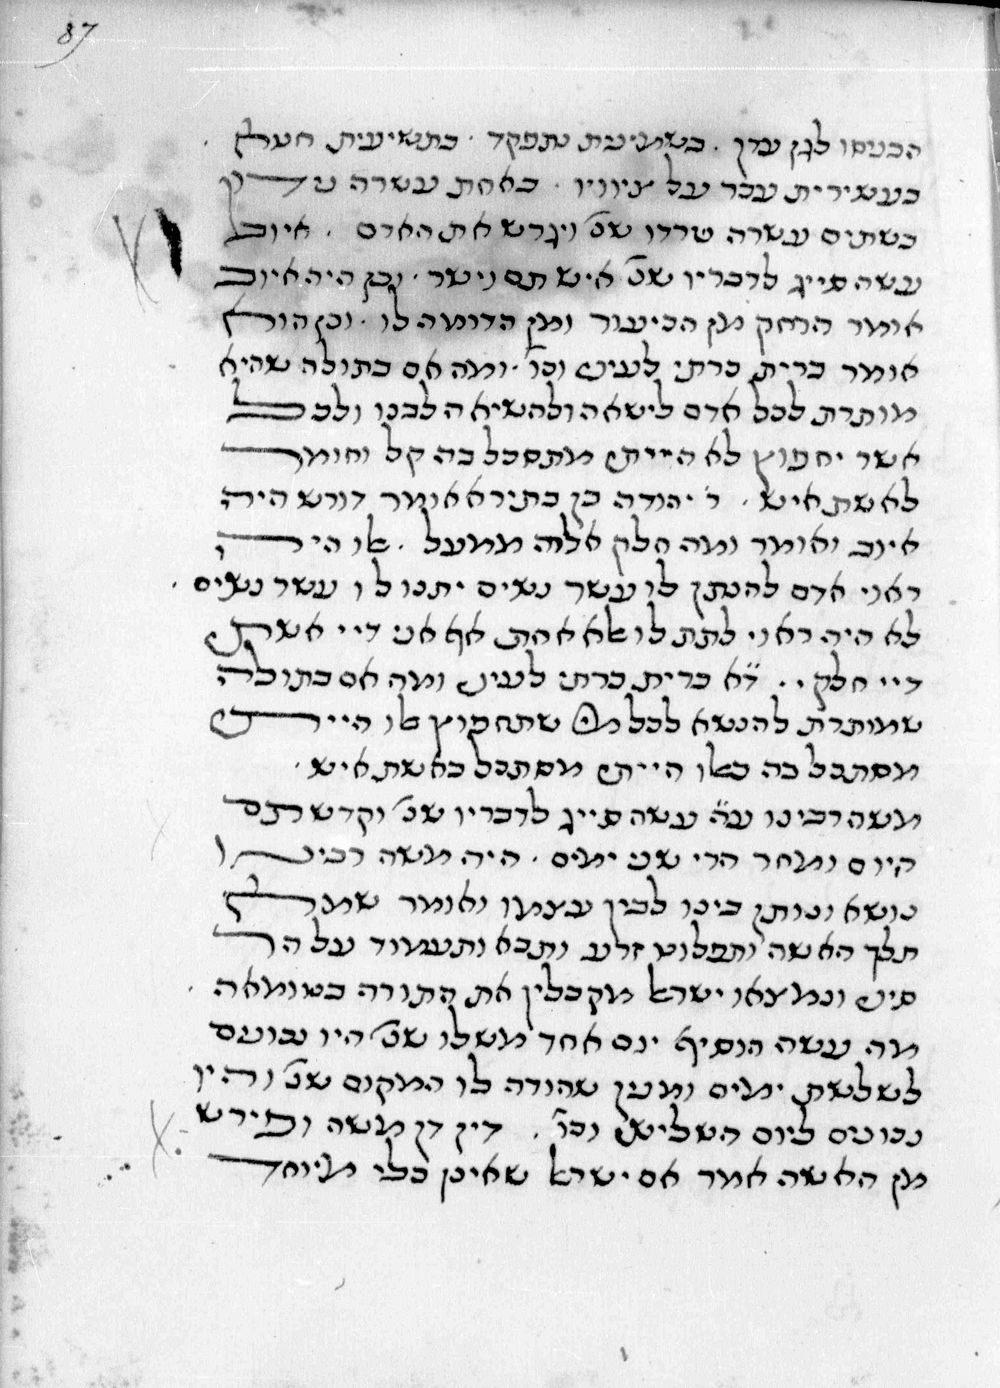 87
הכניסו לגן עדן . בשמינית נתפקד . בתשיעית חטא
בעשירית עבר על ציוויו . באחת עשרה נידון
בשתים עשרה טרדו שנ' ויגרש את האדם . איוב
עשה סייג לדבריו שנ' איש תם וישר . וכן היה איוב
אומר הרחק מן הכיעור ומן הדומה לו . וכן הוא
אומר ברית כרתי לעיני וכו' . ומה אם בתולה שהיא
מותרת לכל אדם לישאה ולהשיאה לבנו ולכל
אשר יחפוץ לא הייתי מתסכל בה קל וחומר
לאשת איש . ר' יהודה בן בתירא אומר דורש היה
איוב ואומר ומה חלק אלוה ממעל . אלו היה
ראוי אדם להנתן לו עשר נשים יתנו לו עשר נשים .
לא היה ראוי לתת לו אלא אחת אף אני דיי אשתי
דיי חלקי . ד"א ברית כרתי לעיני ומה אם בתולה
שמותרת להנשא לכל מי שתחפוץ אלו הייתי
מסתכל בה כאלו הייתי מסתכל באשת איש .
משה רבינו ע"ה עשה סייג לדבריו שנ' וקדשתם
היום ומחר הרי שני ימים . היה משה רבינו
נושא ונותן בינו לבין עצמו ואומר שמא
תלך האשה ותפלוט זרע ותבא ותעמוד על הר
סיני ונמצאו ישראל מקבלין את התורה בטומאה .
מה עשה הוסיף יום אחד משלו שנ' היו נכונים
לשלשת ימים ומנין שהודה לו המקום שנ' והיו
נכונים ליום השלישי וכו' . דין דן משה ופירש
מן האשה אמר אם ישראל שאינן כלי מיוחד